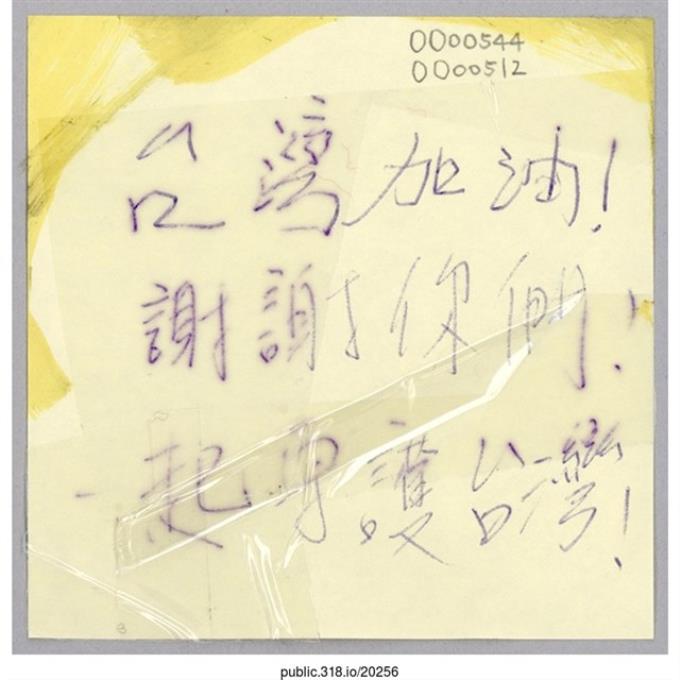 0000544
0000512
台灣加油!
謝謝你們!
一起守護台灣!
public.318.io/20256